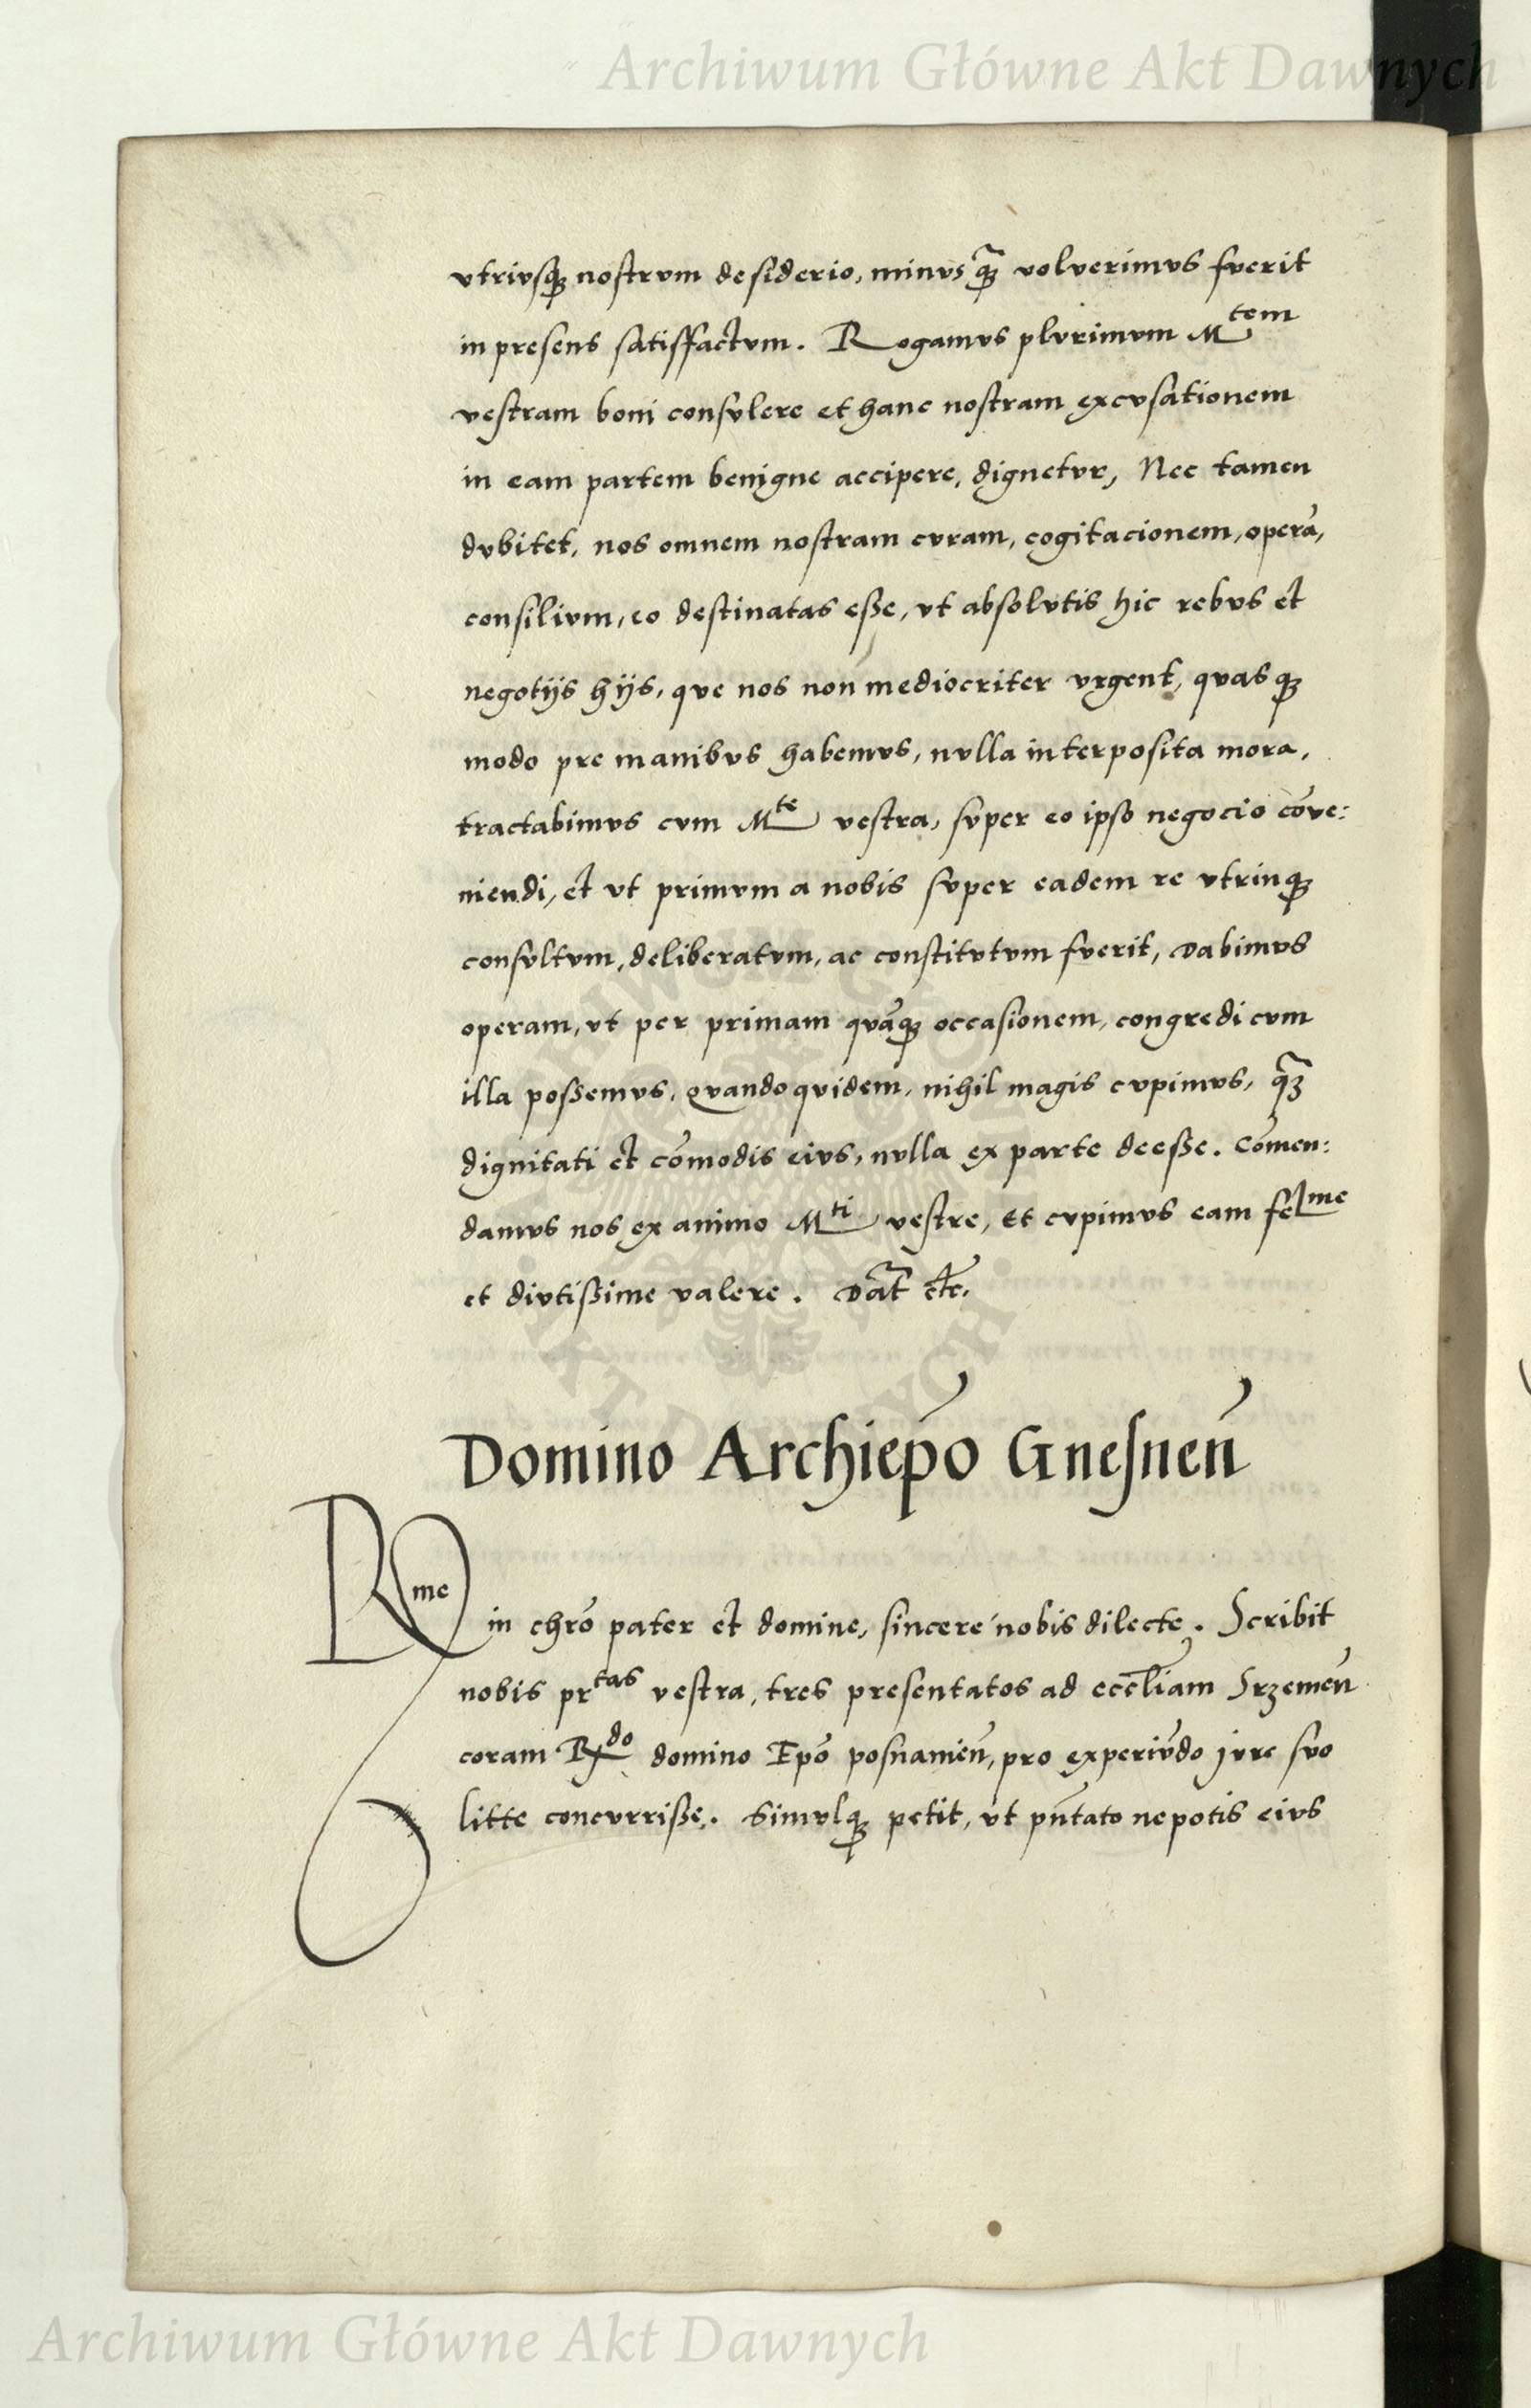 Archiwum Główne Akt Dawnych
vtriusq; nostrum desiderio, minus q̃ꝫ voluerimus fuerit
in presens satisffactum. Rogamus plurimum M^tem
vestram boni consulere et hanc nostram excusationem
in eam partem benigne accipere, dignetur, Nec tamen
dubitet, nos omnem nostram curam, cogitacionem, operã,
consilium, eo destinatas esße, vt absolutis hic rebus et
negotijs hijs, que nos non mediocriter vrgent, quasq;
modo pre manibus habemus, nulla interposita mora,
tractabimus cum M^te vestra, super eo ipso negocio cõve:
niendi, et vt primum a nobis super eadem re vtrinq;
consultum, deliberatum, ac constitutum fuerit, Dabimus
operam, vt per primam quãq; occasionem, congredi cum
illa possemus, Quandoquidem, nihil magis cupimus, q̃ꝫ
dignitati et cõmodis eius, nulla ex parte deesße. Cõmen:
damus nos ex animo M^ti vestre, Et cupimus eam fel^me
et diutißime valere. Dat̃ etc̃.
Domino Archiepõ Gnesneñ
R^me in chrõ pater et domine, sincere nobis dilecte. Scribit
nobis pr^tas vestra, tres presentatos ad eccl̃iam Srzemeñ
coram R^do domino Epõ posnamieñ, pro experiũdo jure suo
litte concurrisße. Simulq; petit, vt pñtato nepotis eius
ARCHIWUM GŁÓWNE AKT DAWNYCH
Archiwum Główne Akt Dawnych